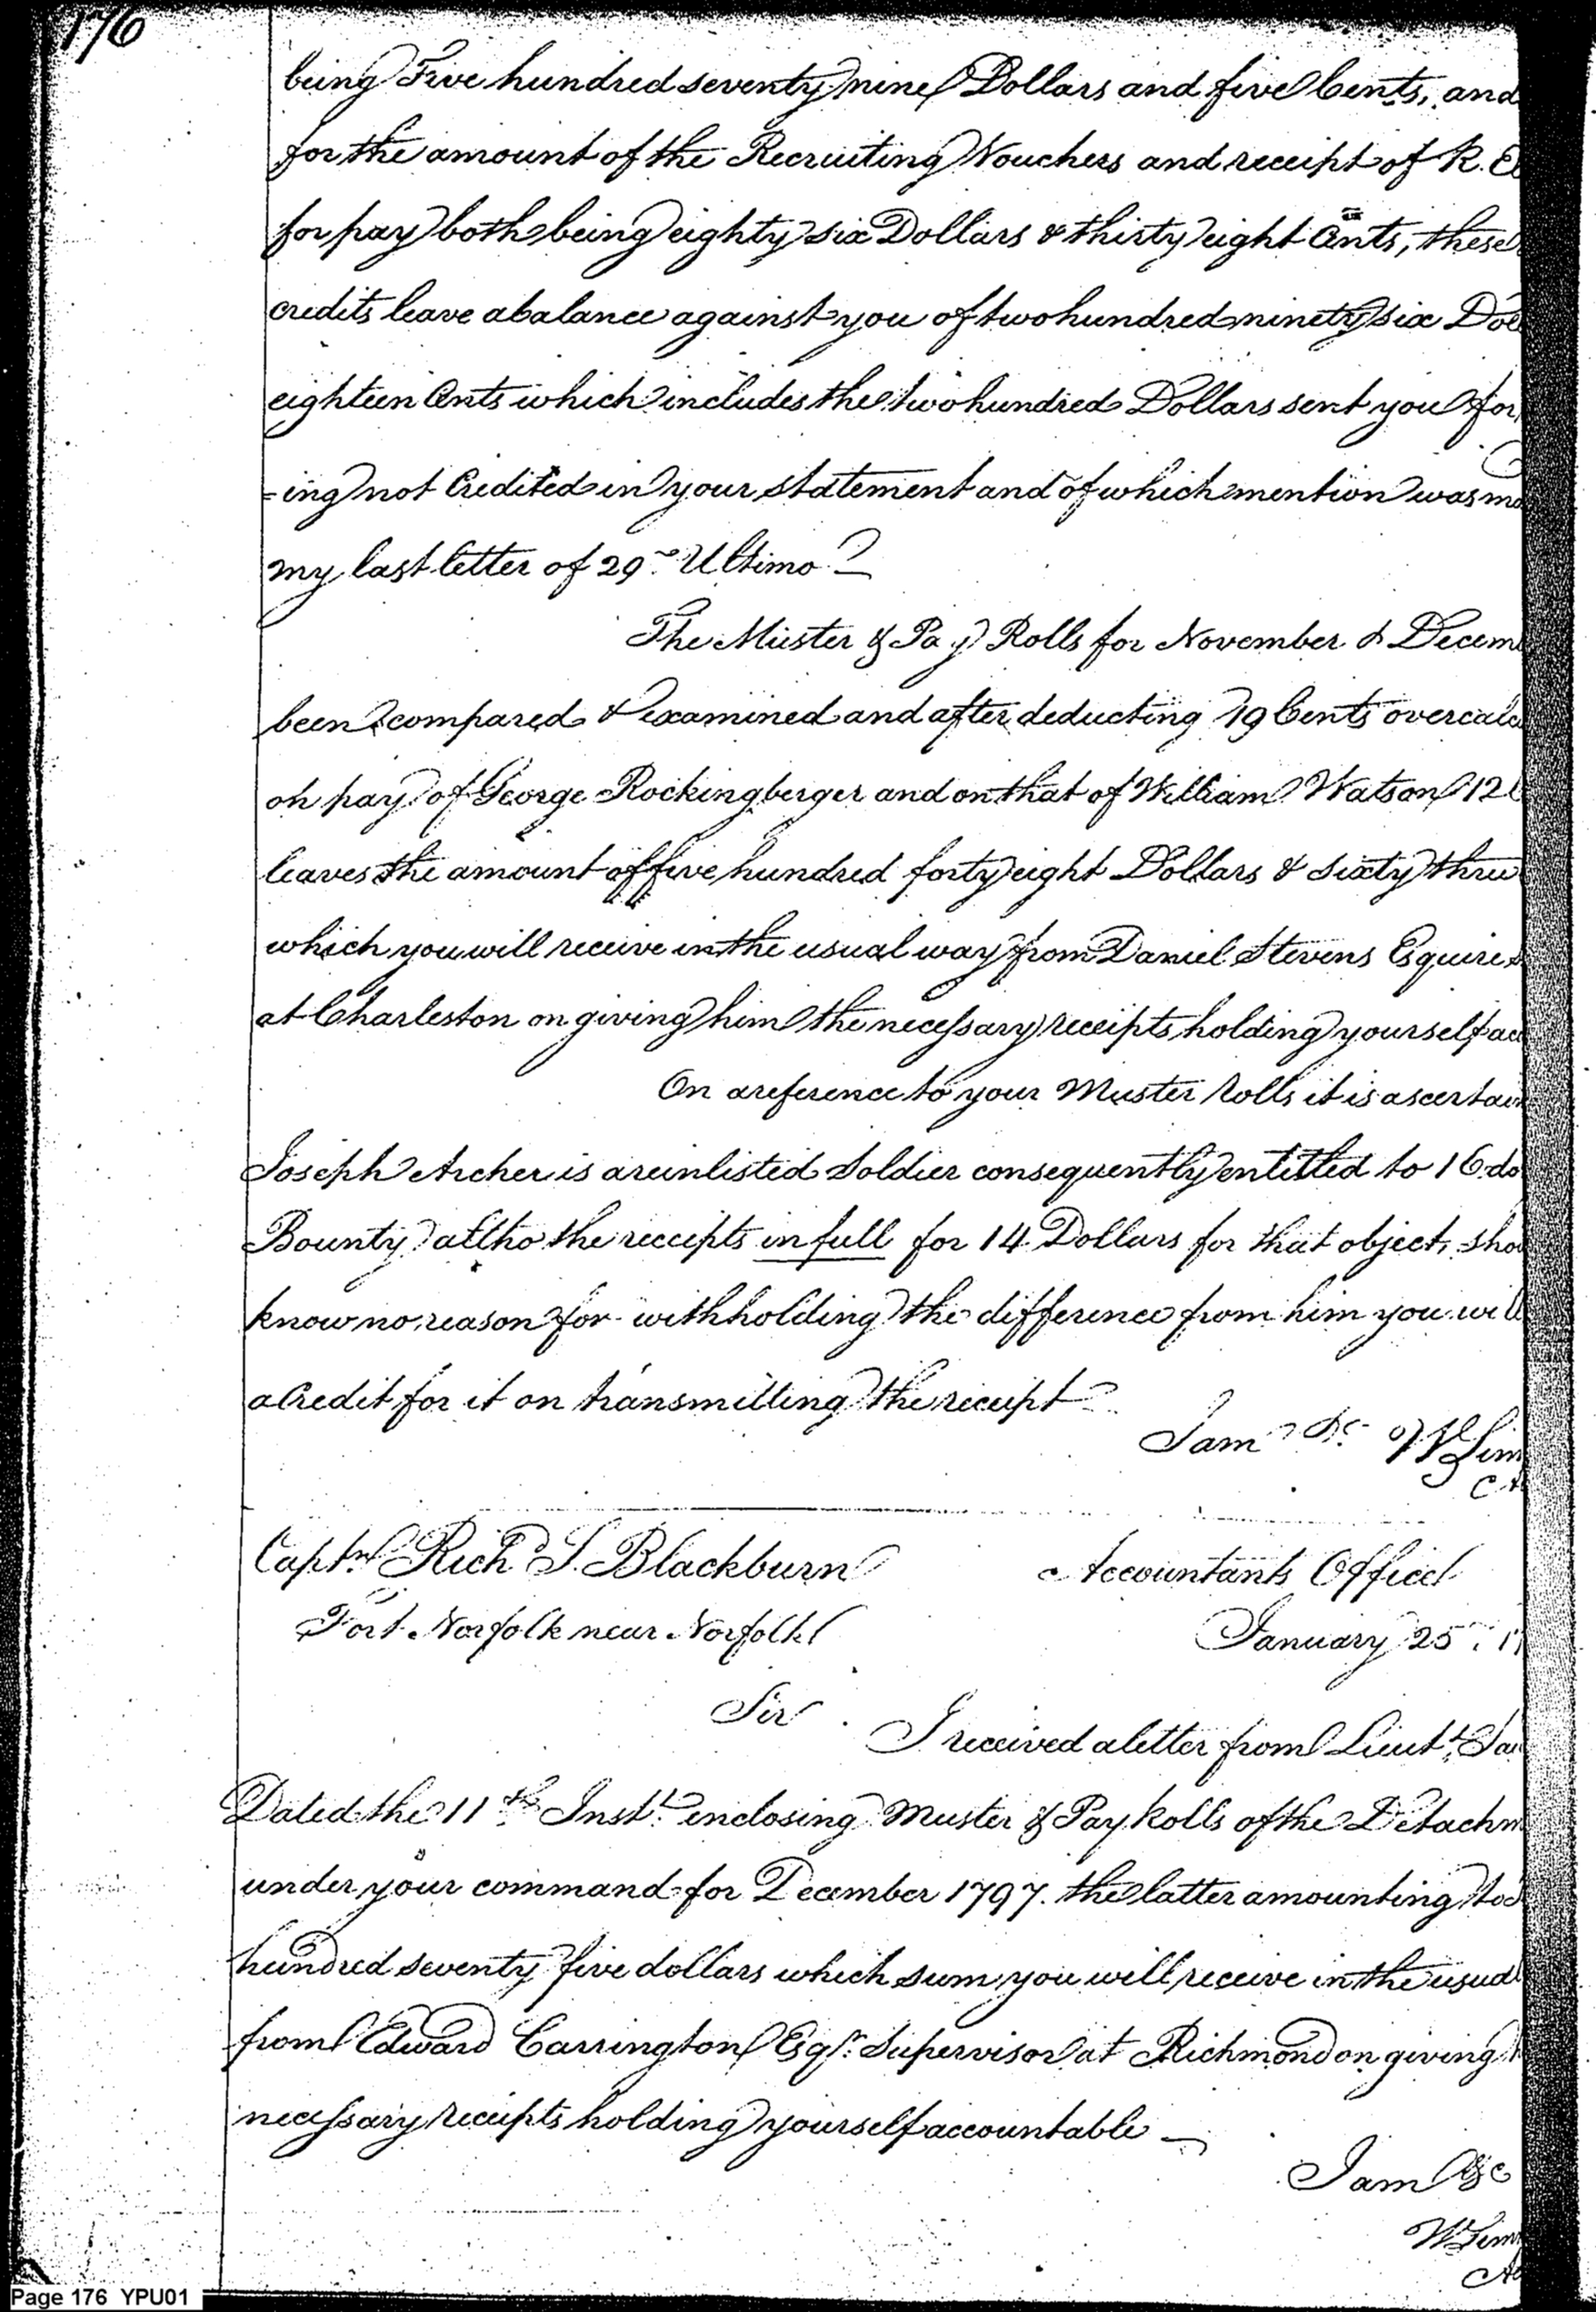 176
being Five hundred seventy nine Dollars and five Cents, and
for the amount of the Recruiting Vouchers and receipt of R. E
for pay both being eighty six Dollars & thirty eight Cents, these
credits leave a balance against you of two hundred ninety six Dol
eighteen Cents which includes the two hundred Dollars sent you for
=ing not Credited in your statement and of which mention was ma
my last letter of 29th Ultimo
The Muster & Pay Rolls for November & Decem
been compared & examined and after deducting 19 Cents overcalc
on pay of George Rockingberger and on that of William Watson 12 C
leaves the amount of five hundred forty eight Dollars & sixty three
which you will receive in the usual way from Daniel Stevens Esquire
at Charleston on giving him the necessary receipts holding yourself acc
On a reference to your Muster rolls it is ascertain
Joseph Archer is a reinlisted Soldier consequently entitled to 16 do
Bounty altho the receipts in full for 14 Dollars for that object, sho
know no reason for withholding the difference from him you will
a Credit for it on transmitting the receipt
I am &c. W Sim
Captn. Richd. S. Blackburn
Accountants Office
Fort Norfolk near Norfolk
January 25. 17
Sir
I received a letter from Lieutt. Sa
Dated the 11th Instt. enclosing Muster & Pay Rolls of the Detachm
under your command for December 1797. the latter amounting to
hundred seventy five dollars which sum you will receive in the usual
from Edward Carrington Esqr. Supervisor at Richmond on giving
necessary receipts holding yourself accountable
I am &c
W Sim
Page 176 YPU01